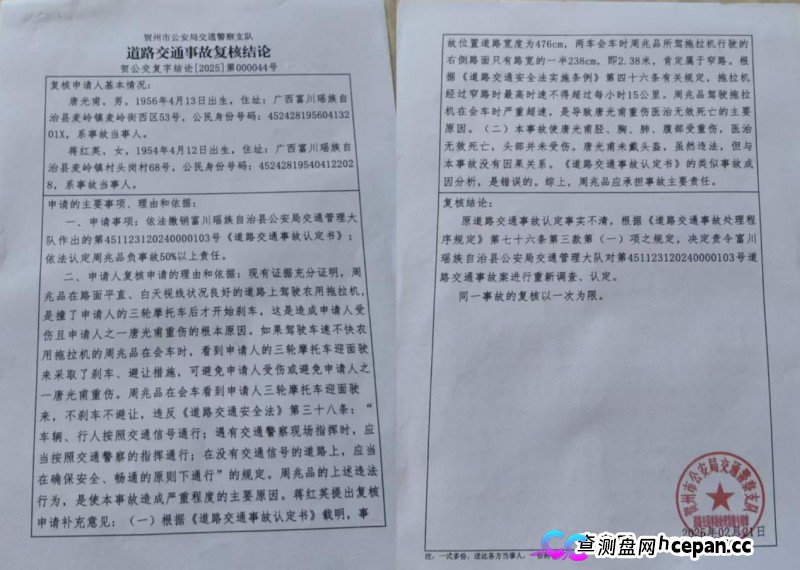 贺州市公安局交通警察支队
道路交通事故复核结论
贺公交复字结论[2025]第000044号
复核申请人基本情况：
唐光甫，男，1956年4月13日出生，住址：广西富川瑶族自
治县麦岭镇麦岭街西区53号，公民身份号码：452428195604132
01X，系事故当事人。
蒋红英，女，1954年4月12日出生，住址：广西富川瑶族自治
县麦岭镇村头岗村68号，公民身份号码：45242819540412202
8，系事故当事人。
申请的主要事项、理由和依据：
一、申请事项：依法撤销富川瑶族自治县公安局交通管理大
队作出的第451123120240000103号《道路交通事故认定书》；
依法认定周兆品负事故50%以上责任。
二、申请人复核申请的理由和依据：现有证据充分证明，周
兆品在路面平直、白天视线状况良好的道路上驾驶农用拖拉机，
是撞了申请人的三轮摩托车后才开始刹车，这是造成申请人受
伤且申请人之一唐光甫重伤的根本原因。如果驾驶车速不快农
用拖拉机的周兆品在会车时，看到申请人的三轮摩托车迎面驶
来采取了刹车、避让措施，可避免申请人受伤或避免申请人之
一唐光甫重伤。周兆品在会车看到申请人三轮摩托车迎面驶
来，不刹车不避让，违反《道路交通安全法》第三十八条：“
车辆、行人按照交通信号通行；遇有交通警察现场指挥时，应
当按照交通警察的指挥通行；在没有交通信号的道路上，应当
在确保安全、畅通的原则下通行”的规定。周兆品的上述违法
行为，是使本事故造成严重程度的主要原因。蒋红英提出复核
申请补充意见：（一）根据《道路交通事故认定书》载明，事
故位置道路宽度为476cm，两车会车时周兆品所驾拖拉机行驶的
右侧路面只有路宽的一半238cm，即2.38米，肯定属于窄路。根
据《道路交通安全法实施条例》第四十六条有关规定，拖拉机
经过窄路时最高时速不得超过每小时15公里。周兆品驾驶拖拉
机在会车时严重超速，是导致唐光甫重伤医治无效死亡的主要
原因。（二）本事故使唐光甫胫、胸、肺、腹部受重伤，医治
无效死亡，头部并未受伤。唐光甫未戴头盔，虽然违法，但与
本事故没有因果关系。《道路交通事故认定书》的类似事故成
因分析，是错误的。综上，周兆品应承担事故主要责任。
复核结论：
原道路交通事故认定事实不清，根据《道路交通事故处理程
序规定》第七十六条第三款第（一）项之规定，决定责令富川
瑶族自治县公安局交通管理大队对第451123120240000103号道
路交通事故案进行重新调查、认定。
同一事故的复核以一次为限。
贺州市公安局交通警察支队
2025年02月21日
注：一式多份，送达各方当事人，一份附
查测盘网hcepan.cc